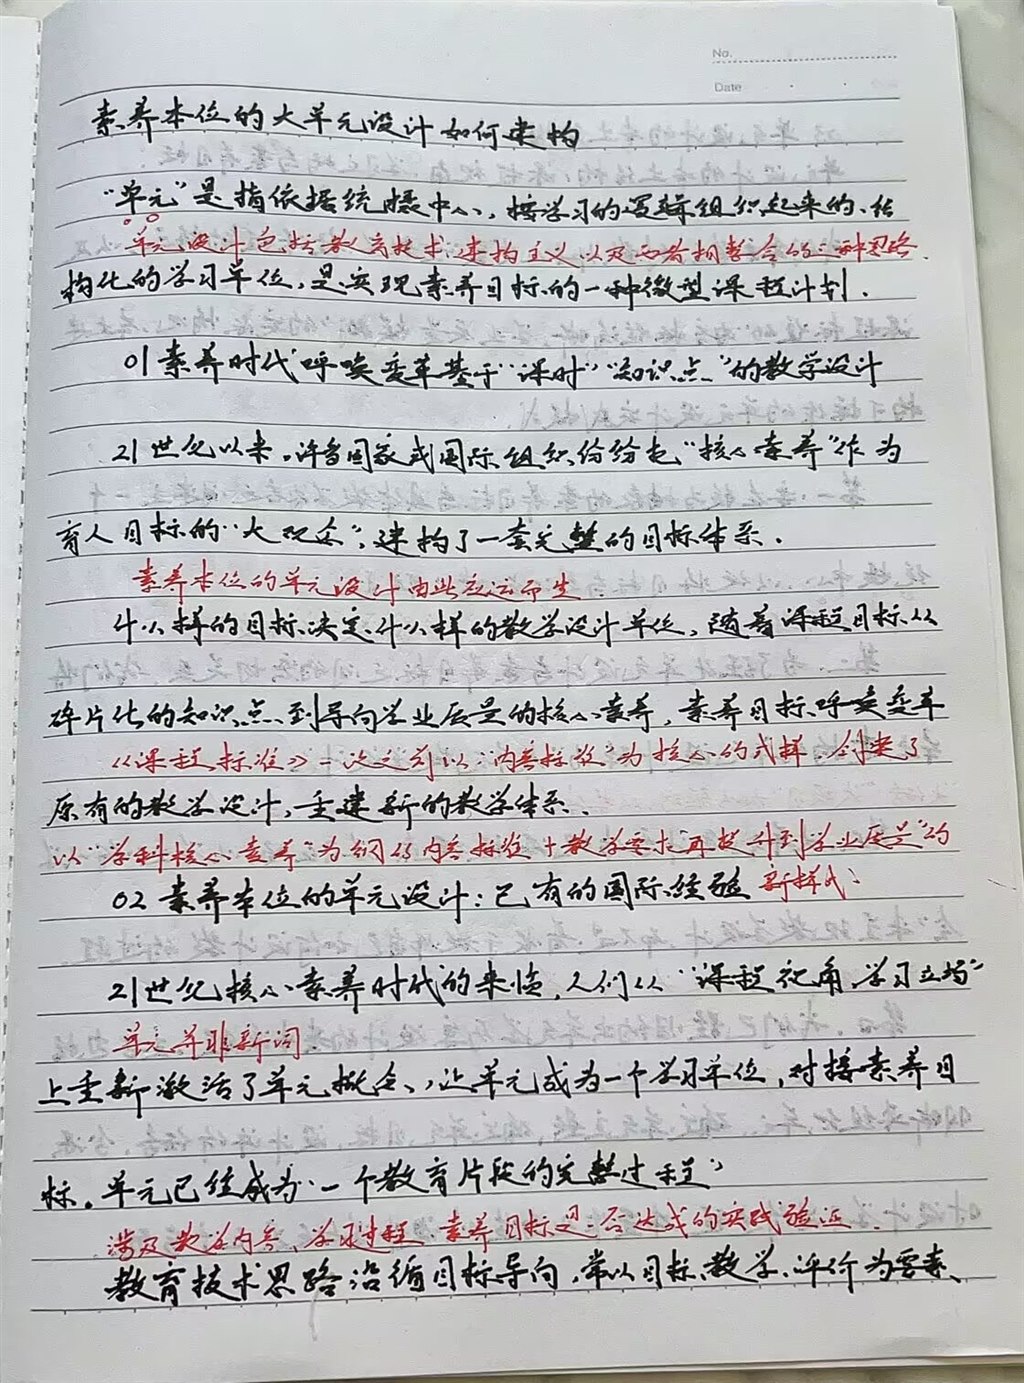 No.
Date
素养本位的大单元设计如何建构
“单元”是指依据统摄中心,按学习的逻辑组织起来的、结
单元设计包括教育技术、建构主义以及两者相整合的三种思路.
构化的学习单位,是实现素养目标的一种微型课程计划.
01 素养时代呼唤变革基于“课时”“知识点”的教学设计
21世纪以来,许多国家或国际组织纷纷把“核心素养”作为
育人目标的“大观念”,建构了一套完整的目标体系.
素养本位的单元设计由此应运而生
什么样的目标决定什么样的教学设计单位,随着课程目标从
碎片化的知识点到导向学业质量的核心素养,素养目标呼唤变革
《课程标准》一改之前以“内容标准”为核心的式样,创建了
原有的教学设计,重建新的教学体系.
以“学科核心素养”为纲的内容标准+教学要求再提升到学业质量”的
02 素养本位的单元设计:已有的国际经验 新样式.
21世纪核心素养时代的来临,人们从“课程视角,学习立场”
单元并非新词
上重新激活了单元概念,让单元成为一个学习单位,对接素养目
标.单元已经成为“一个教育片段的完整过程”
涉及教学内容、学习过程、素养目标是否达成的实践验证.
教育技术思路沿循目标导向,常以目标、教学、评价为要素、